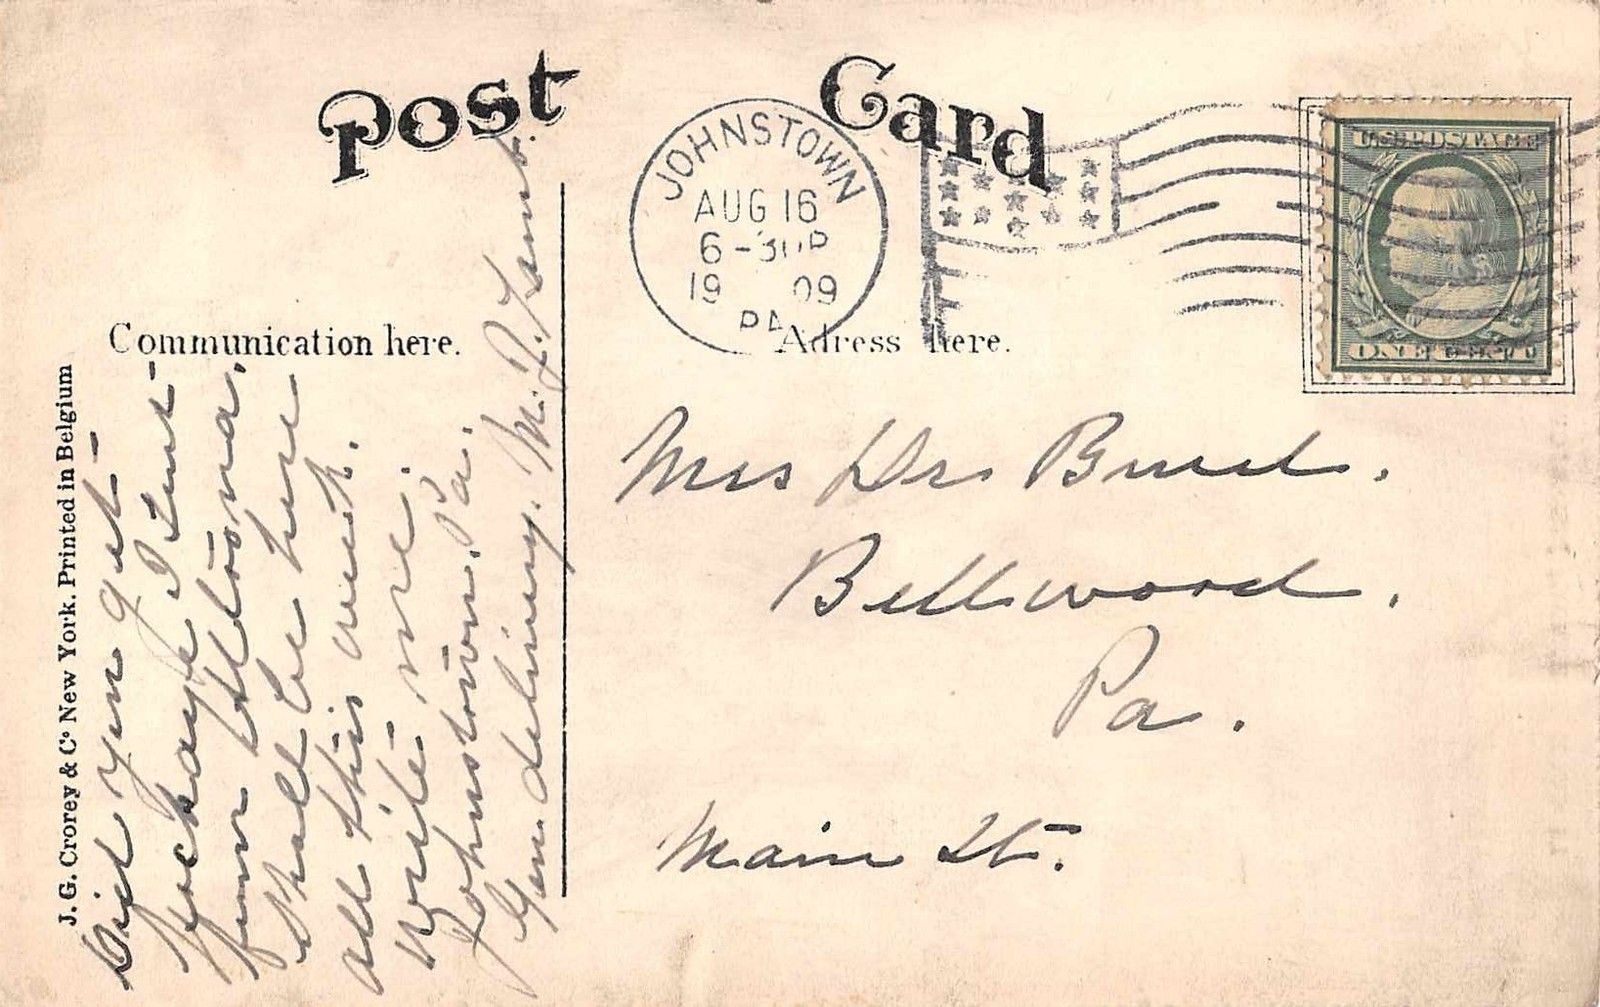 Post Card
JOHNSTOWN
AUG 16
6-30P
1909
PA
U.S. POSTAGE
ONE CENT
Communication here.
Adress here.
J. G. Crorey & Co New York. Printed in Belgium
Did you get
package I sent
from Altoona.
Shall be here
all this week.
Write me.
Johnstown, Pa.
Gen. delivery. M. L.
Mrs Dr
Bellwood.
Pa.
Main St.